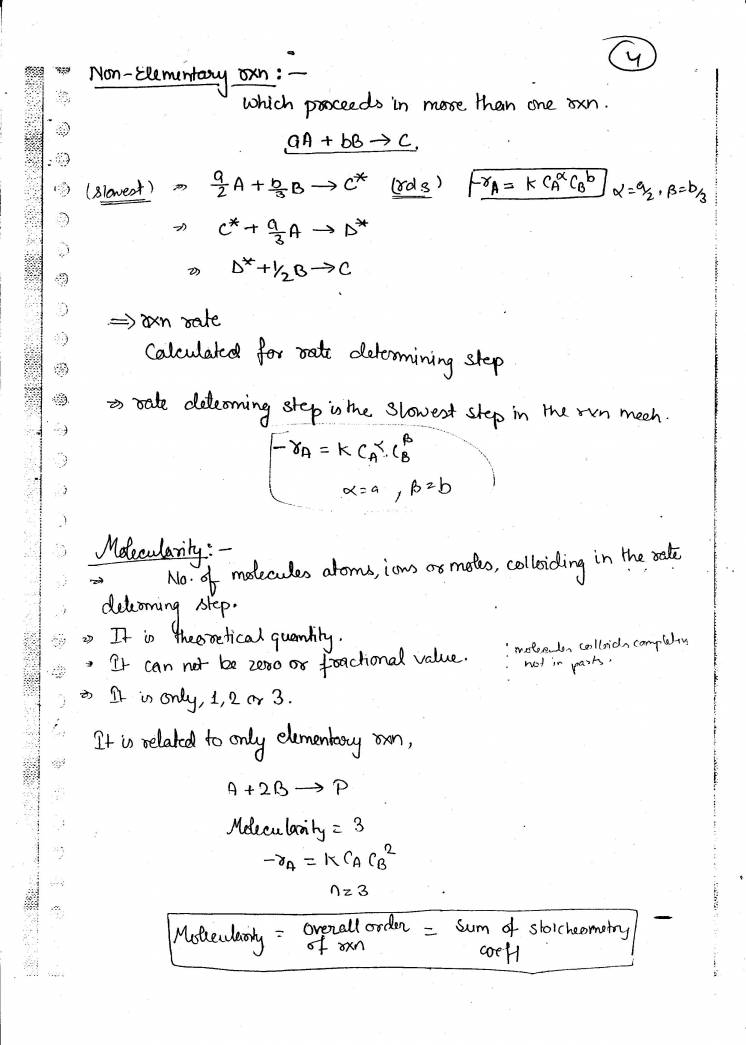 4
Non-Elementary rxn : —
which proceeds in more than one rxn.
aA + bB → C,
(slowest) ⇒ a/2 A + b/3 B → C* (rds) -rA = K CA^α CB^b α = a/2, β = b/3
⇒ C* + a/3 A → D*
⇒ D* + 1/2 B → C
⇒ rxn rate
Calculated for rate determining step
⇒ rate determing step is the slowest step in the rxn mech.
-rA = K CA^α. CB^β
α = a , β = b
Molecularity : —
⇒ No. of molecules atoms, ions or moles, colloiding in the rate
determing step.
⇒ It is theoretical quantity.
⇒ It can not be zero or fractional value. : molecules colloids completely
: not in parts.
⇒ It is only, 1, 2 or 3.
It is related to only elementary rxn,
A + 2B → P
Molecularity = 3
-rA = K CA CB^2
n = 3
Molecularity = Overall order of rxn = Sum of stoicheometry coeff